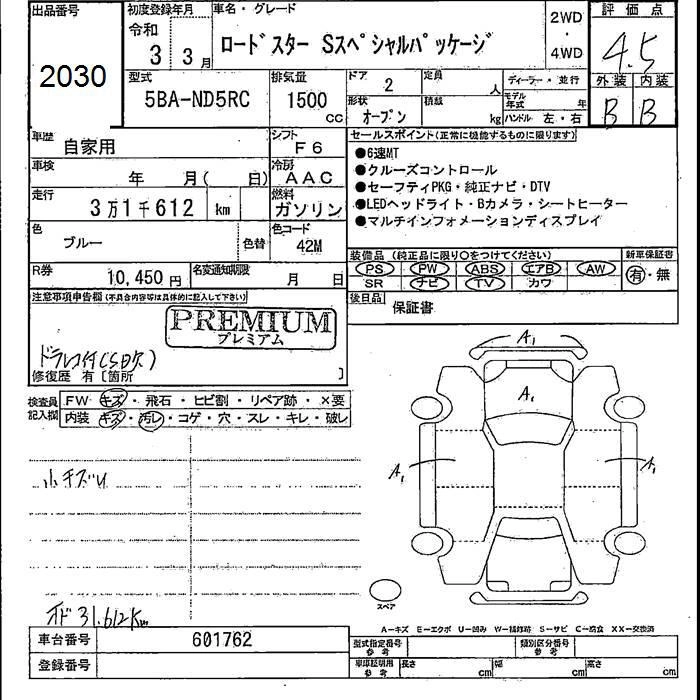 出品番号
2030
初度登録年月
令和
3 3月
車名・グレード
ロードスター Sスペシャルパッケージ
2WD
・
4WD
評価点
4.5
外装 内装
B B
型式
5BA-ND5RC
排気量
1500
cc
ドア
2
定員
人
ディーラー・並行
形状
オープン
積載
kg
モデル年式
年
ハンドル 左・右
車歴
自家用
シフト
F6
車検
年 月( 日)
冷房
AAC
走行
3万1千612 km
燃料
ガソリン
色
ブルー
色替
色コード
42M
R券
10,450円
名変通知期限
月 日
セールスポイント(正常に機能するものに限ります)
●6速MT
●クルーズコントロール
●セーフティPKG・純正ナビ・DTV
●LEDヘッドライト・Bカメラ・シートヒーター
●マルチインフォメーションディスプレイ
装備品 (純正品に限り○をつけてください)
新車保証書
PS PW ABS エアB AW
SR ナビ TV カワ
有・無
後日品
保証書
注意事項申告欄(不具合内容等は具体的に記入して下さい)
PREMIUM
プレミアム
ドラレコ付(SD欠)
修復歴 有[箇所 ]
検査員
記入欄
FW キズ・飛石・ヒビ割・リペア跡・×要
内装 キズ・汚レ・コゲ・穴・スレ・キレ・破レ
小キズU
オド31.612Km
A1
A1
A1
A1
スペア
A-キズ E-エクボ U-凹み W-補修跡 S-サビ C-腐食 XX-交換済
車台番号
601762
登録番号
型式指定番号
参考
類別区分番号
参考
車庫証明用
参考
長さ cm
幅 cm
高さ cm